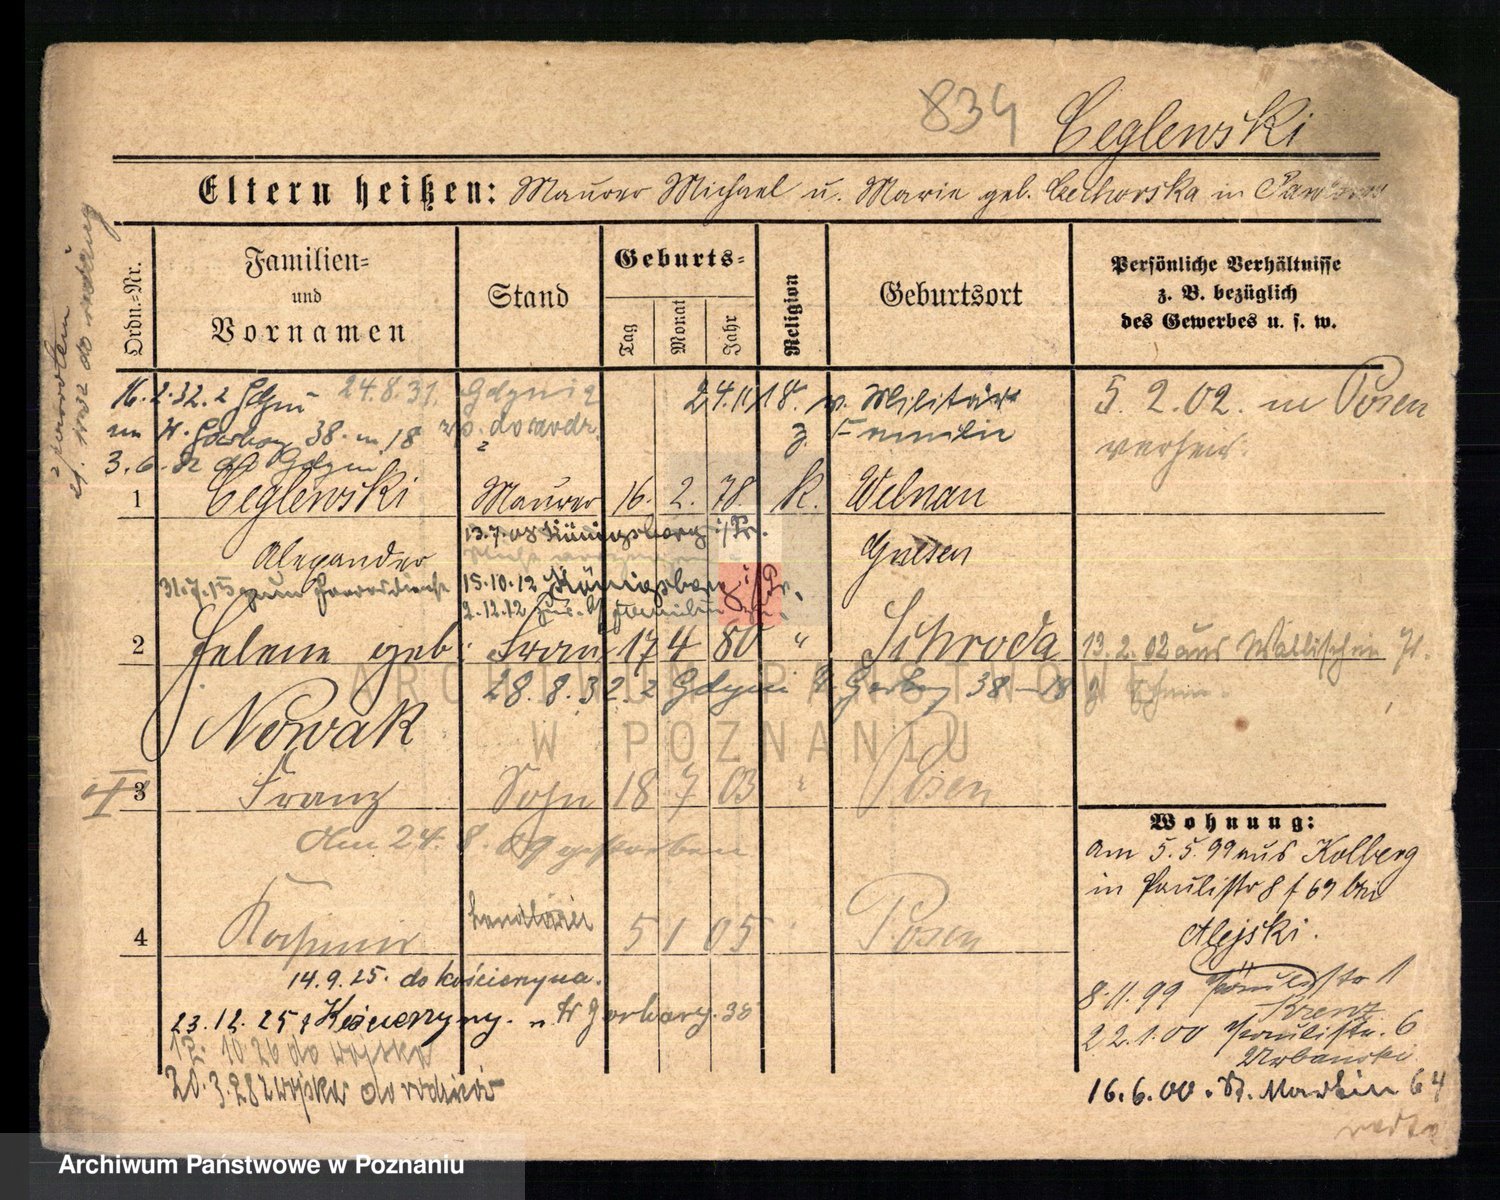 834 Ceglewski
Eltern heißen: Maurer Michael u. Marie geb. Cechorska in
Ordn.-Nr.
Familien- und Vornamen
Stand
Geburts-
Tag
Monat
Jahr
Religion
Geburtsort
Persönliche Verhältnisse
z. B. bezüglich
des Gewerbes u. s. w.
16.2.32. z Gdyni 24.8.31. Gdynia
38. m 18
3.6.32 do Gdyni
24.11.18. v. Militär
z. Familie
5.2.02. in Posen
verheir.
1 Ceglewski Maurer 16. 2. 78. k. Welnau
Alexander
13.7.08 Königsberg i/Pr.
Gnesen
31.7.15 zum Heeresdienst
15.10.12 Königsberg i/Pr.
2.12.12 Familie
2 Helene geb. Frau 17 4 80 " Schroda
13.2.02 aus Wallischei
28.8.32. z Gdyni 38-18
Nowak
II
3 Franz Sohn 18 7 03 " Posen
Am 24. 8. 09 gestorben
4 Kasimir 5 1 05 " Posen
14.9.25. do Kościerzyna.
23.12.25 z Kościerzyny. n. W Garbary. 38
12.10.26 do wojska
20.3.28 z wojska do rodziców
Wohnung:
am 5.5.99 aus Kolberg
in Paulistr 8 f 69 bei
Alejski.
8.11.99 Paulistr 1
Krenz
22.1.00 Paulistr. 6
Urbanski
16.6.00. St. Martin 64
ARCHIWUM PAŃSTWOWE
W POZNANIU
Archiwum Państwowe w Poznaniu